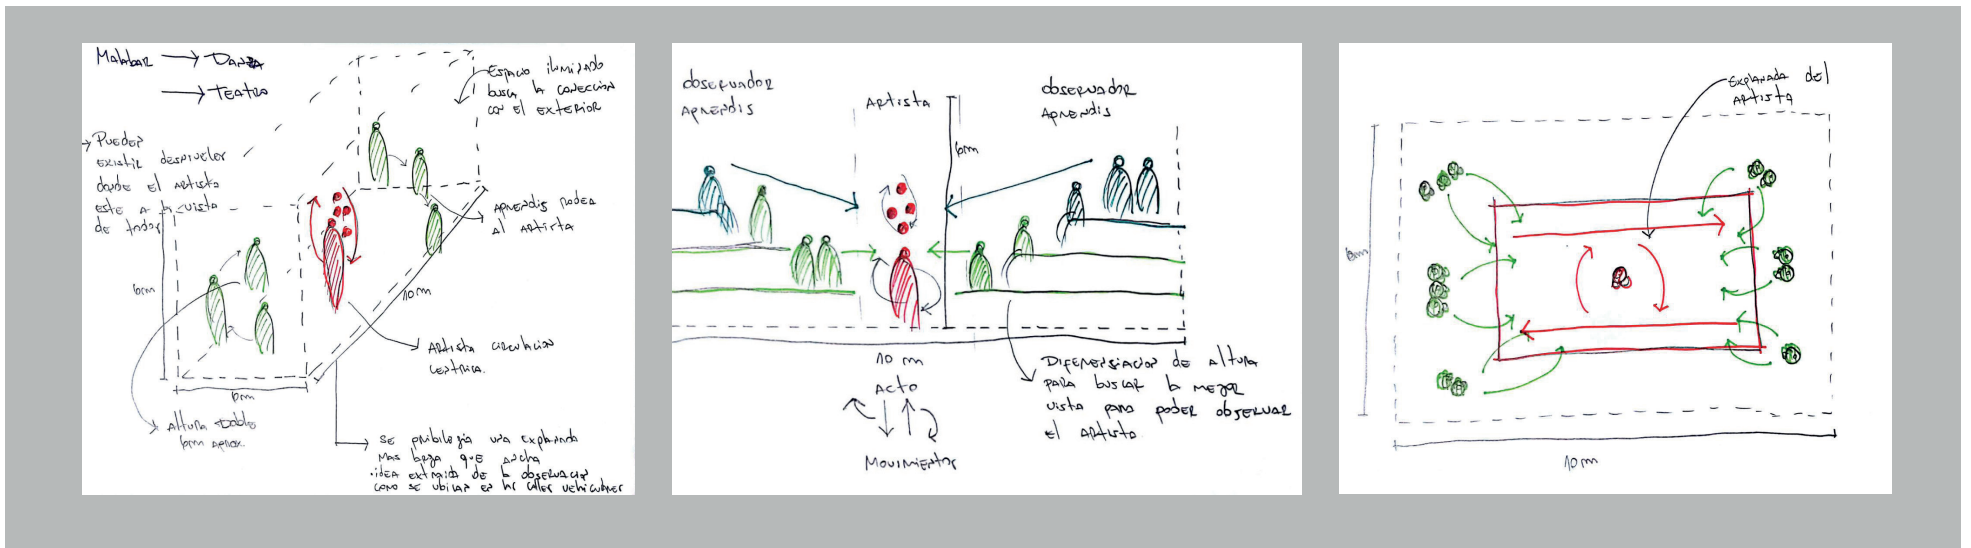 Malabar → Danza
→ Teatro
Espacio iluminado
busca la conección
con el exterior
Pueden
existir desniveles
donde el artista
este a la vista
de todos
Aprendis rodea
al artista
6m
10m
Artista circulacion
centrica.
6m
Altura Doble
6m aprox.
se pribilegia una explanada
mas larga que ancha
idea extraida de la observación
como se ubican en las calles vehiculares
observador
aprendis
Artista
observador
aprendis
6m
10 m
Acto
Movimientos
Diferensiacion de altura
para buscar la mejor
vista para poder observar
el artista.
explanada del
artista
8m
10 m